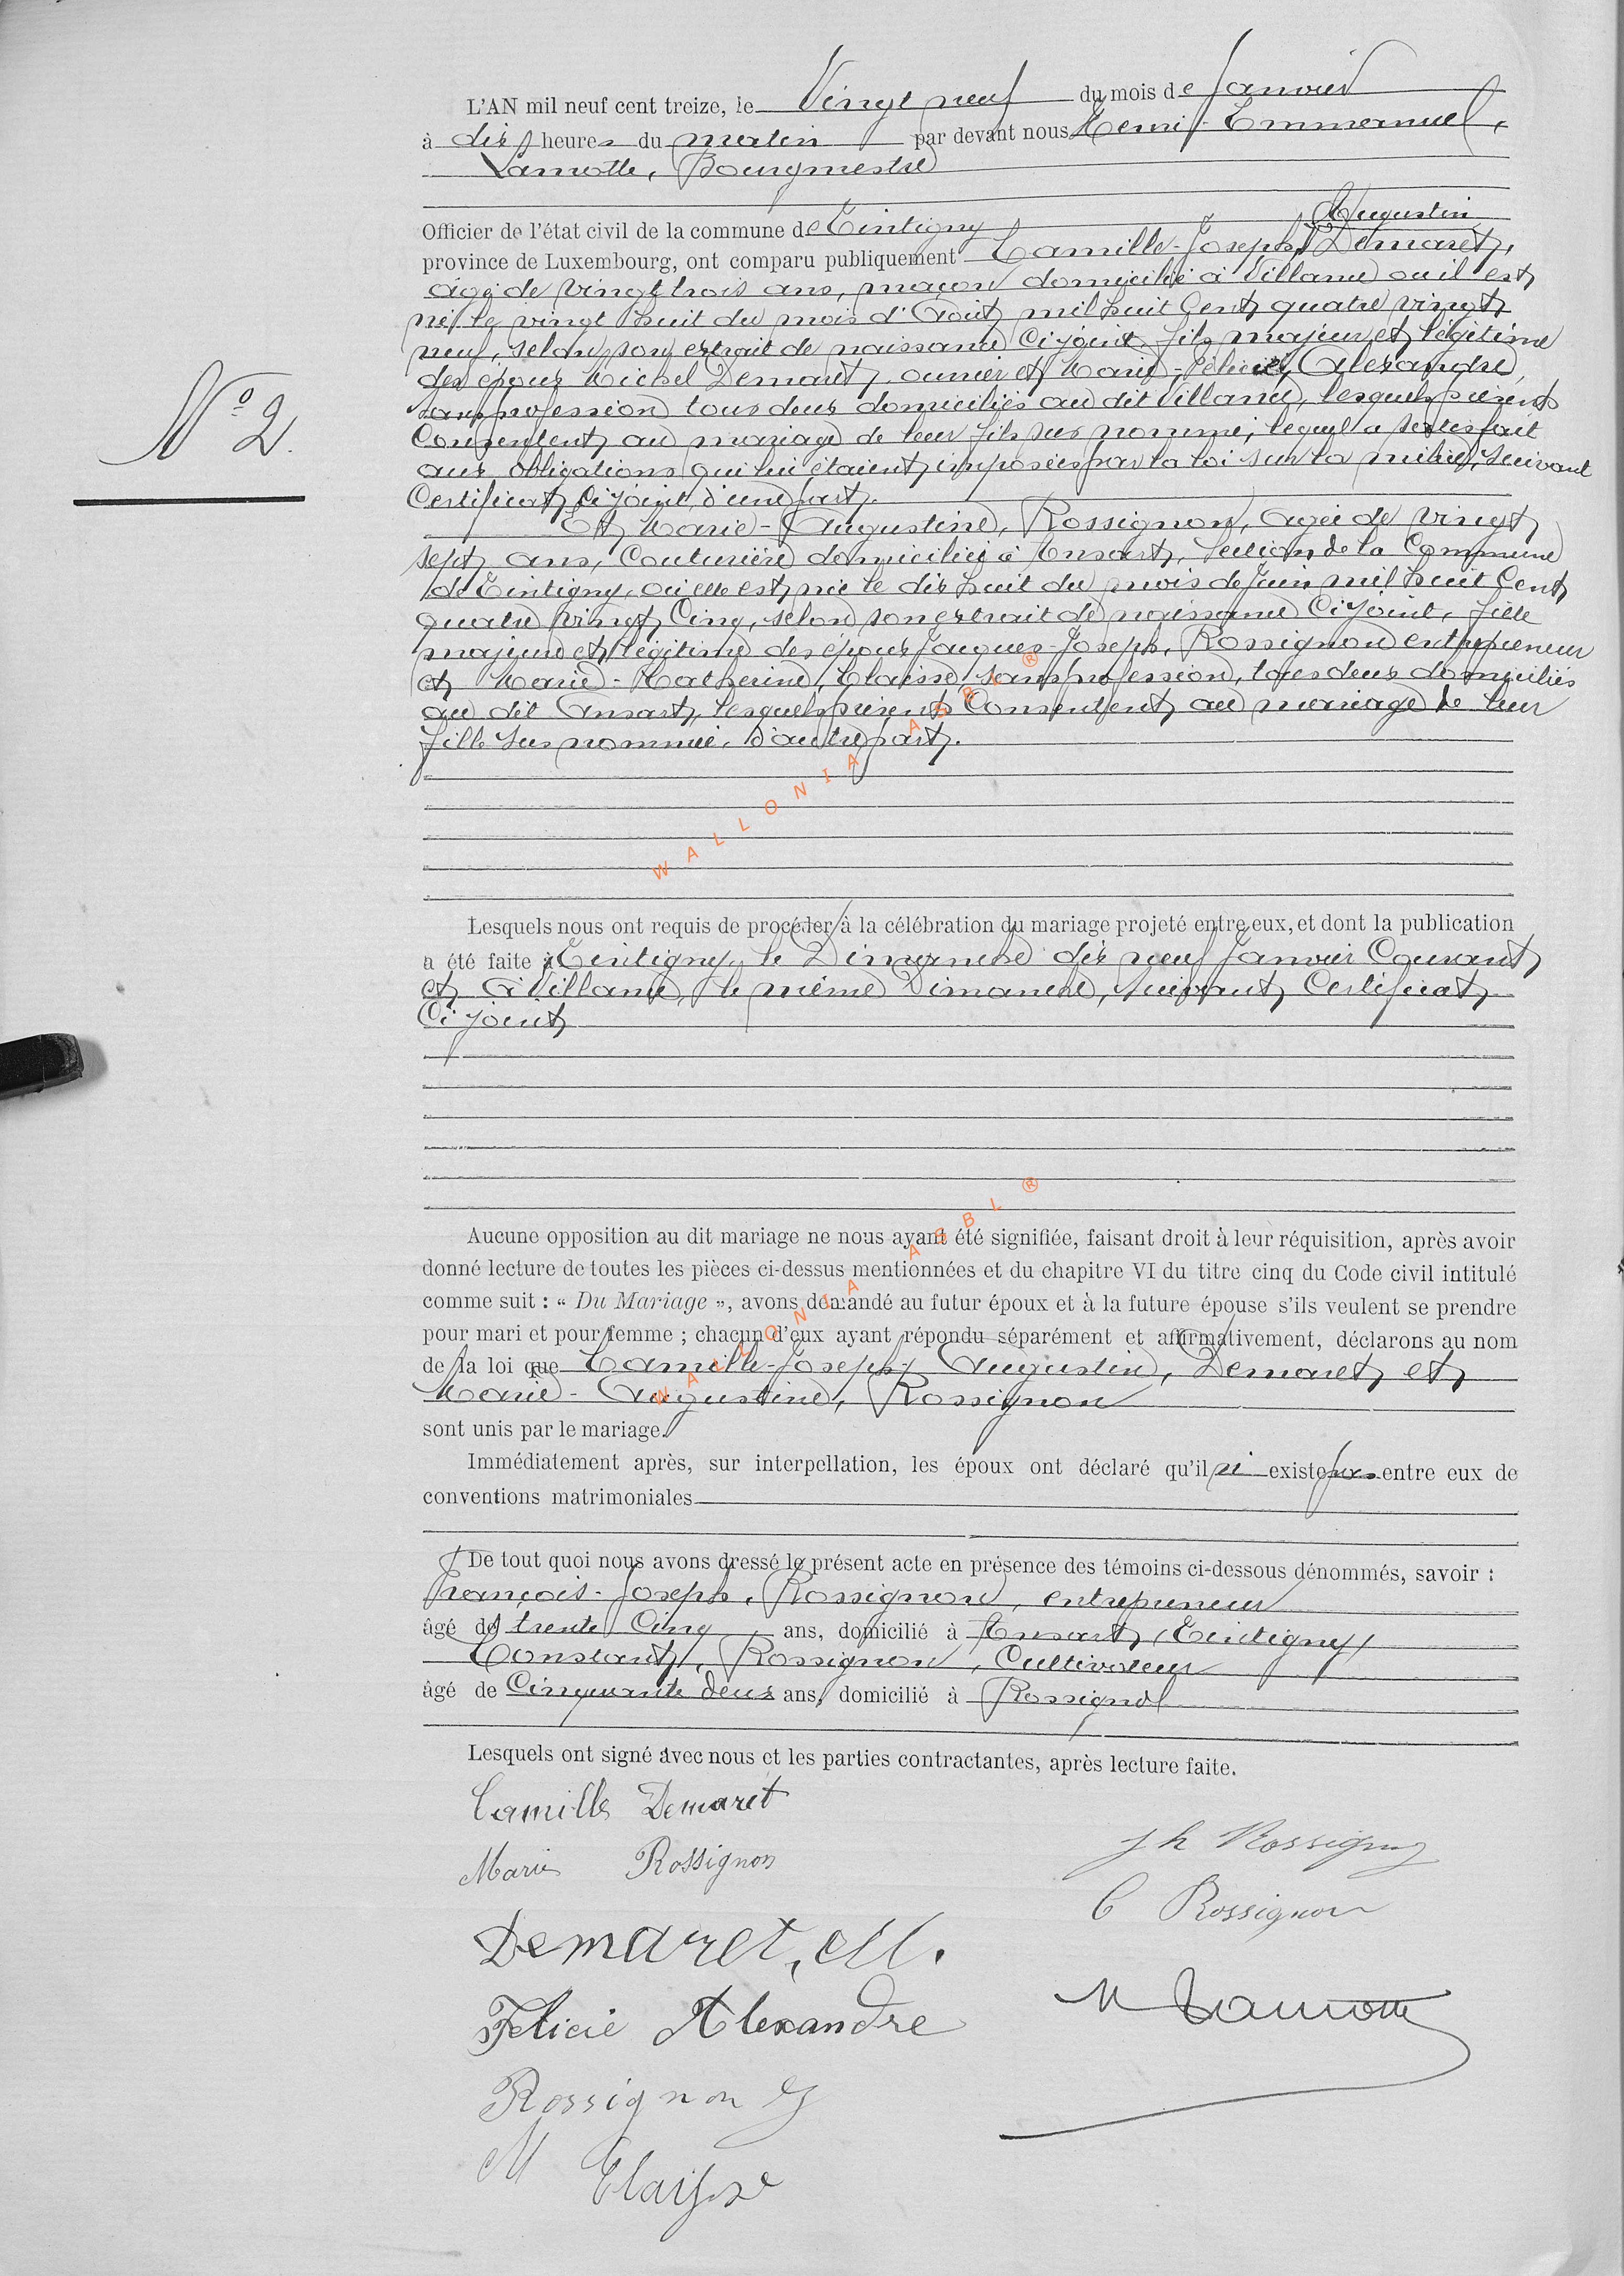 L'AN mil neuf cent treize, le Vingt neuf du mois de Janvier
à dix heures du matin par devant nous Henri-Emmanuel,
Lamotte, Bourgmestre
Officier de l'état civil de la commune de Tintigny
Augustin
province de Luxembourg, ont comparu publiquement Camille-Joseph, Demaret,
âgé de vingt trois ans, maçon domicilié à Villance où il est
né le vingt huit du mois d'Août mil huit Cent quatre vingt
neuf, selon son extrait de naissance Ci joint, fils majeur et légitime
des époux Michel Demaret, ouvrier et Marie-Félicie, Alexandre,
sans profession tous deux domiciliés au dit Villance, lesquels présents
Consentent au mariage de leur fils sus nommé; lequel a satisfait
aux obligations qui lui étaient imposées par la loi sur la milice, suivant
Certificat Ci joint, d'une part.
Et Marie-Augustine, Rossignon, agée de vingt
sept ans, Couturière domiciliée à Ansart, section de la Commune
de Tintigny, où elle est née le dix huit du mois de Juin mil huit Cent
quatre vingt Cinq, selon son extrait de naissance Ci joint, fille
majeure et légitime des époux Jacques-Joseph, Rossignon entrepreneur
et Marie-Catherine, Claisse, sans profession, tous deux domiciliés
au dit Ansart, lesquels présents Consentent au mariage de leur
fille sus nommée, d'autre part.
WALLONIA ASBL ®
Lesquels nous ont requis de procéder à la célébration du mariage projeté entre eux, et dont la publication
a été faite à Tintigny, le Dimanche dix neuf Janvier Courant
et à Villance, le même Dimanche, suivant Certificat
Ci joint
WALLONIA ASBL ®
Aucune opposition au dit mariage ne nous ayant été signifiée, faisant droit à leur réquisition, après avoir
donné lecture de toutes les pièces ci-dessus mentionnées et du chapitre VI du titre cinq du Code civil intitulé
comme suit : « Du Mariage », avons demandé au futur époux et à la future épouse s'ils veulent se prendre
pour mari et pour femme ; chacun d'eux ayant répondu séparément et affirmativement, déclarons au nom
de la loi que Camille-Joseph-Augustin, Demaret, et
Marie-Augustine, Rossignon
sont unis par le mariage.
Immédiatement après, sur interpellation, les époux ont déclaré qu'il n' existe pas entre eux de
conventions matrimoniales
De tout quoi nous avons dressé le présent acte en présence des témoins ci-dessous dénommés, savoir :
François-Joseph, Rossignon, entrepreneur
âgé de trente Cinq ans, domicilié à Ansart, (Tintigny)
Constant, Rossignon, Cultivateur
âgé de Cinquante deux ans, domicilié à Rossignol
Lesquels ont signé avec nous et les parties contractantes, après lecture faite.
Nº 2.
Camille Demaret
Marie Rossignon
Demaret, M.
Felicie Alexandre
Rossignon J
M Claisse
Jh Rossignon
C Rossignon
H Lamotte